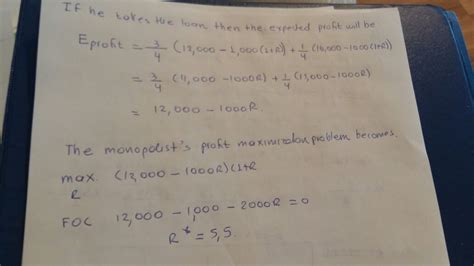 If he takes the loan then the expected profit will be
E profit = 3/4 (12,000 - 1,000(1+R)) + 1/4 (16,000 - 1000(1+R))
= 3/4 (11,000 - 1000R) + 1/4 (15,000 - 1000R)
= 12,000 - 1000R.
The monopolist's profit maximization problem becomes.
max (12,000 - 1000R)(1+R
R
FOC 12,000 - 1,000 - 2000R = 0
R* = 5,5.